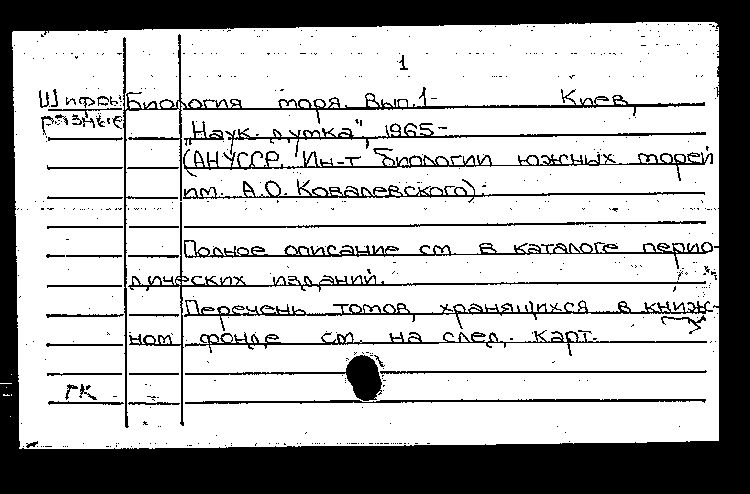 1
Шифры Биология моря. Вып. 1- Киев,
разные
„Наук. думка", 1965-
(АН УССР. Ин-т биологии южных морей
им. А.О. Ковалевского).
Полное описание см. в каталоге перио-
дических изданий.
Перечень томов, хранящихся в книж-
ном фонде см. на след. карт.
ГК